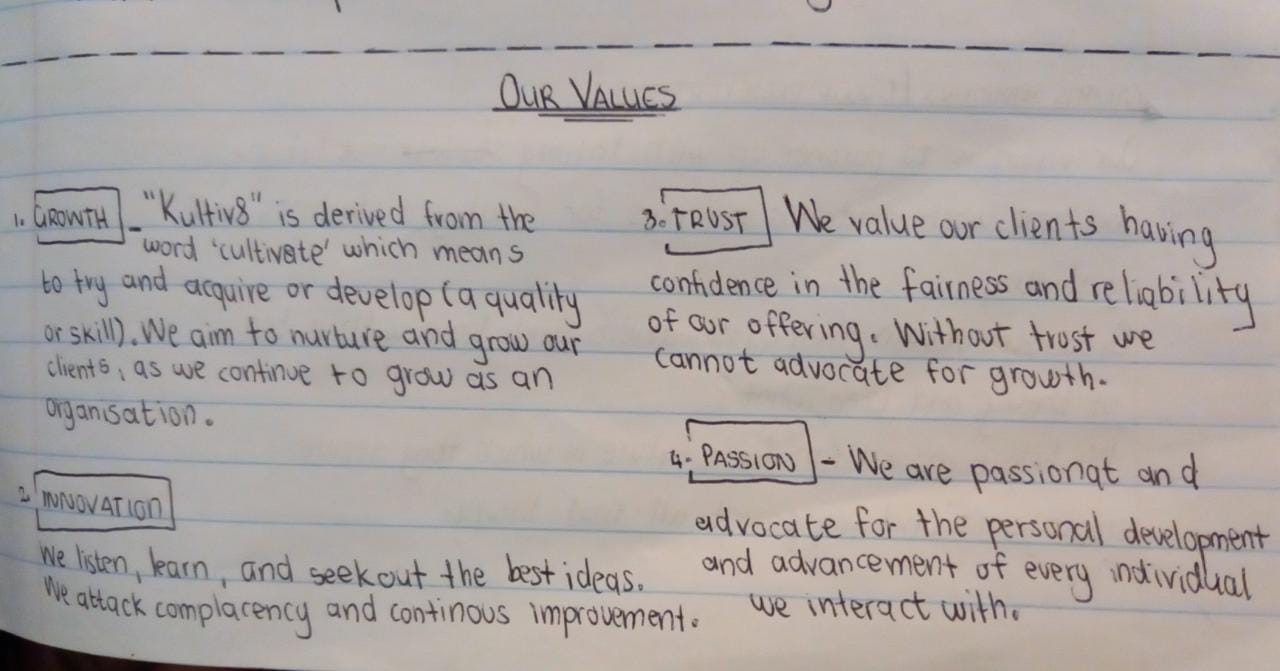 OUR VALUES
1. GROWTH - "Kultiv8" is derived from the
word 'cultivate' which means
to try and acquire or develop (a quality
or skill). We aim to nurture and grow our
clients, as we continue to grow as an
organisation.
2. INNOVATION
We listen, learn, and seek out the best ideas.
We attack complacency and continous improvement.
3. TRUST We value our clients having
confidence in the fairness and reliability
of our offering. Without trust we
cannot advocate for growth.
4. PASSION - We are passionat and
advocate for the personal development
and advancement of every individual
we interact with.